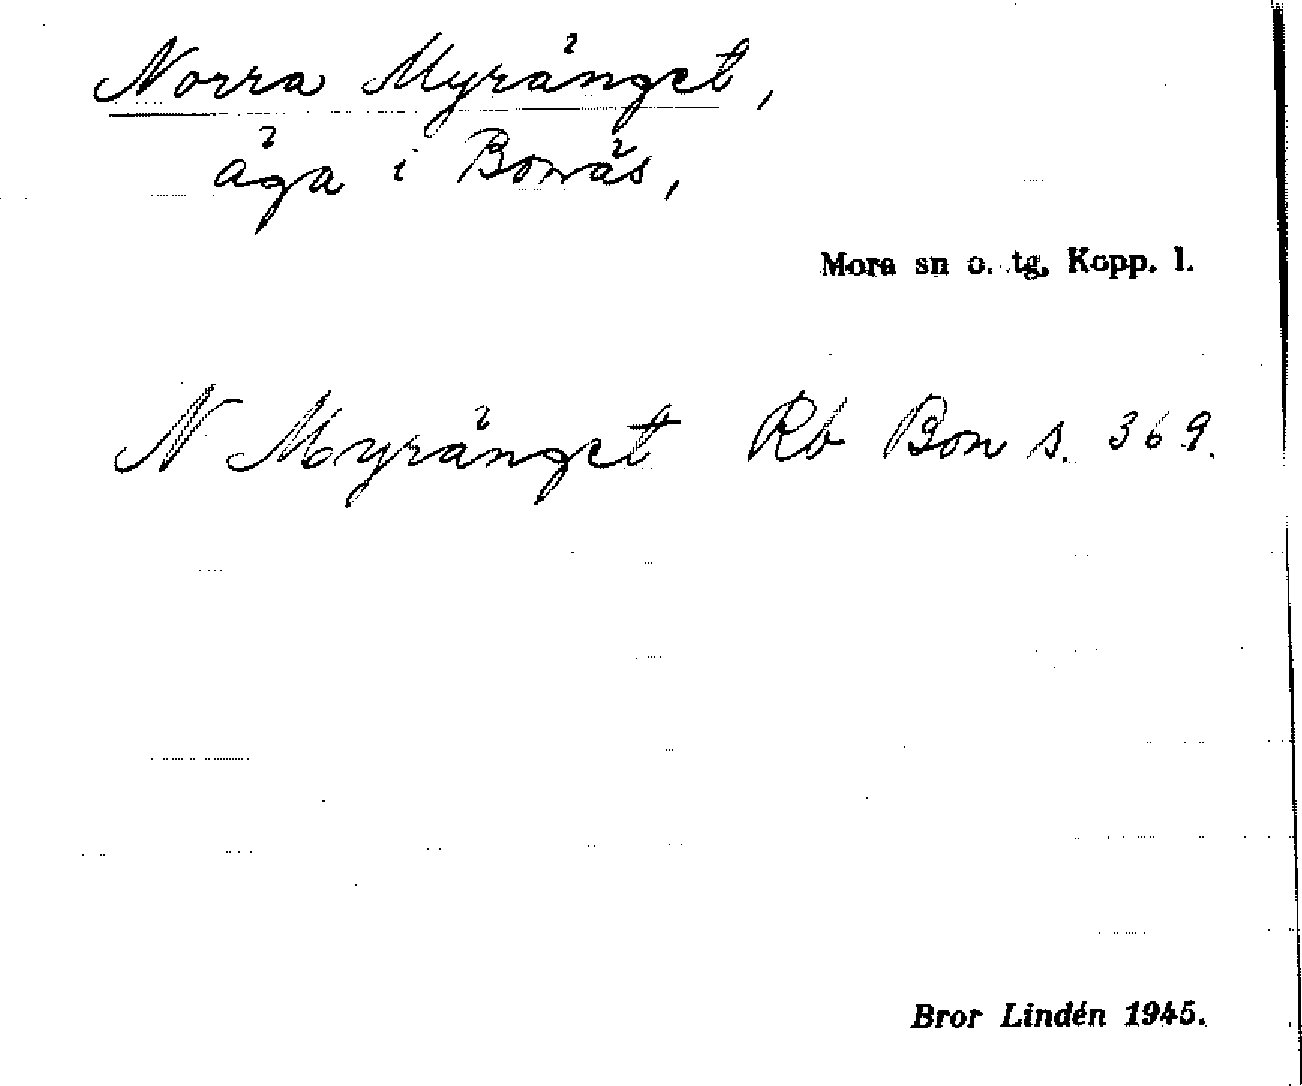 Norra Myränget,
äga i Bonäs,
Mora sn o. tg, Kopp. l.
N Myränget Rb Bon s. 369.
Bror Lindén 1945.